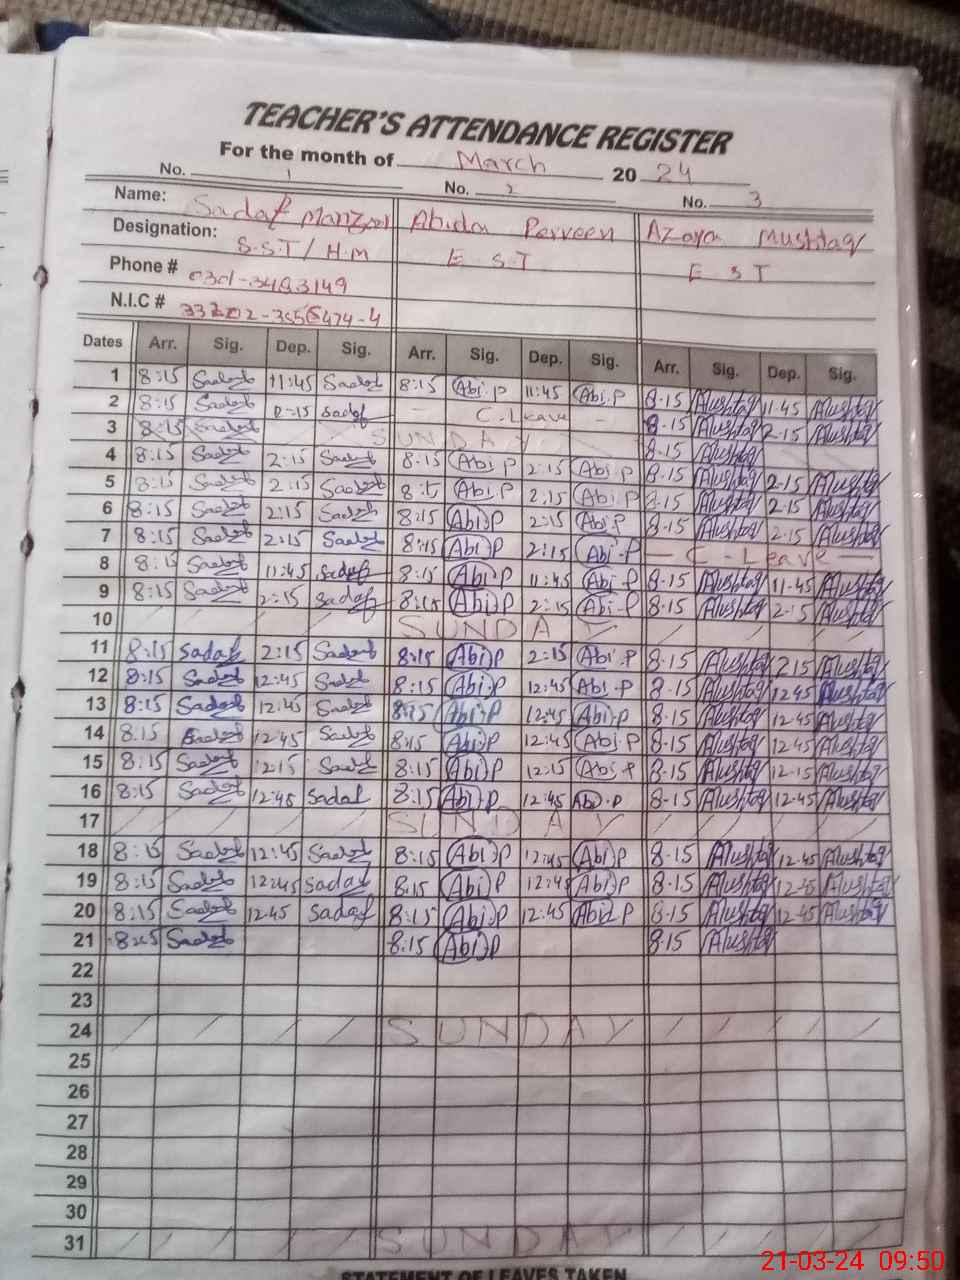 TEACHER'S ATTENDANCE REGISTER
For the month of March 20 24
No. 1 No. 2 No. 3
Name: Sadaf Manzoor Abida Parveen Azora Mushtaq
Designation: S.S.T / H.M E S.T E S T
Phone #
N.I.C #
Dates Arr. Sig. Dep. Sig. Arr. Sig. Dep. Sig. Arr. Sig. Dep. Sig.
1 8:15 Sadaf 11:45 Sadaf 8:15 Abi.P 11:45 Abi.P 8-15 Mushtaq 11-45 Mushtaq
2 8:15 Sadaf sadaf - C. Leave - 8-15 Mushtaq 2-15 Mushtaq
3 8:15 Sadaf SUNDAY 8-15 Mushtaq
4 8:15 Sadaf 2:15 Sadaf 8-15 Abi.P 2:15 Abi.P 8-15 Mushtaq 2-15 Mushtaq
5 8:15 Sadaf 2:15 Sadaf 8:15 Abi.P 2:15 Abi.P 8-15 Mushtaq 2-15 Mushtaq
6 8:15 Sadaf 2:15 Sadaf 8:15 Abi.P 2:15 Abi.P 8-15 Mushtaq 2-15 Mushtaq
7 8:15 Sadaf 2:15 Sadaf 8:15 Abi.P 2:15 Abi.P — C - Leave —
8 8:15 Sadaf 11:45 Sadaf 8:15 Abi.P 11:45 Abi.P 8-15 Mushtaq 11-45 Mushtaq
9 8:15 Sadaf 2:15 Sadaf 8:15 Abi.P 2:15 Abi.P 8-15 Mushtaq 2-15 Mushtaq
10 SUNDAY
11 8:15 Sadaf 2:15 Sadaf 8:15 Abi.P 2:15 Abi.P 8-15 Mushtaq 2 15 Mushtaq
12 8:15 Sadaf 12:45 Sadaf 8:15 Abi.P 12:45 Abi.P 8-15 Mushtaq 12 45 Mushtaq
13 8:15 Sadaf 12:45 Sadaf 8:15 Abi.P 12:45 Abi.P 8-15 Mushtaq 12-45 Mushtaq
14 8:15 Sadaf 12:45 Sadaf 8:15 Abi.P 12:45 Abi.P 8-15 Mushtaq 12-45 Mushtaq
15 8:15 Sadaf 12:15 Sadaf 8:15 Abi.P 12:15 Abi.P 8-15 Mushtaq 12-15 Mushtaq
16 8:15 Sadaf 12:45 Sadaf 8:15 Abi.P 12:45 Abi.P 8-15 Mushtaq 12-45 Mushtaq
17 SUNDAY
18 8:15 Sadaf 12:45 Sadaf 8:15 Abi.P 12:45 Abi.P 8-15 Mushtaq 12-45 Mushtaq
19 8:15 Sadaf 12:45 Sadaf 8:15 Abi.P 12:45 Abi.P 8-15 Mushtaq 12-45 Mushtaq
20 8:15 Sadaf 12:45 Sadaf 8:15 Abi.P 12:45 Abi.P 8-15 Mushtaq 12-45 Mushtaq
21 8:15 Sadaf 8:15 Abi.P 8-15 Mushtaq
22
23
24 SUNDAY
25
26
27
28
29
30
31 SUNDAY
STATEMENT OF LEAVES TAKEN
21-03-24 09:50